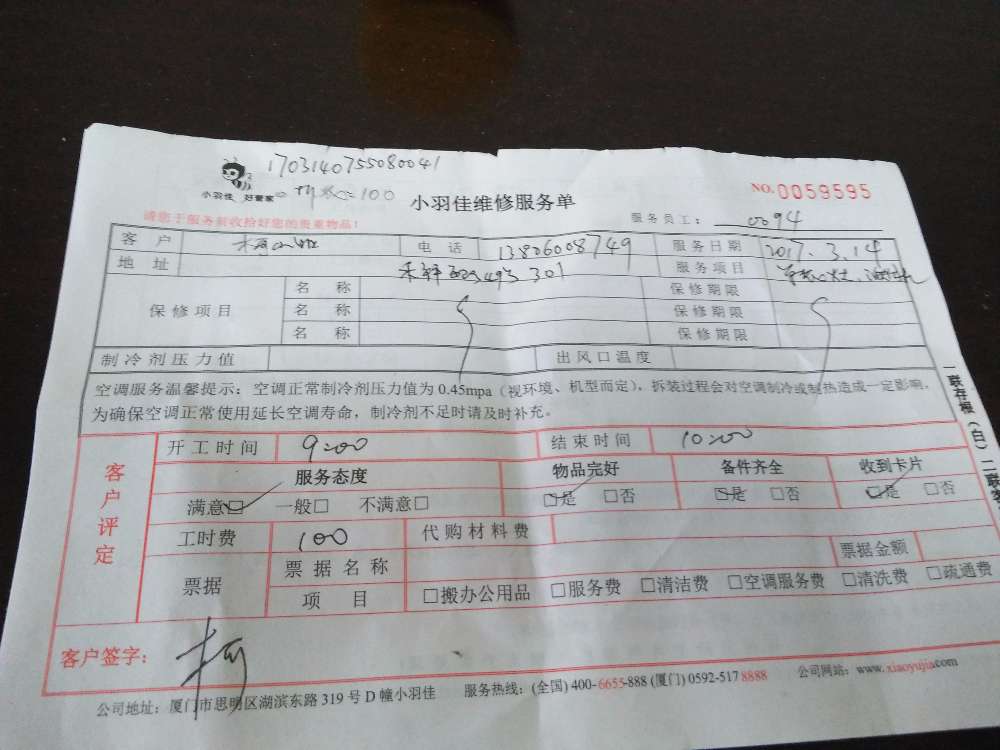 1703140755080041
小羽佳 好管家
=100
小羽佳维修服务单
NO.0059595
请您于服务前收拾好您的贵重物品!
服务员工: 0094
客 户 电 话 13806008749 服务日期 2017.3.14
地 址 301 服务项目
保修项目 名 称 保修期限
名 称 保修期限
名 称 保修期限
制冷剂压力值 出风口温度
空调服务温馨提示:空调正常制冷剂压力值为0.45mpa(视环境、机型而定),拆装过程会对空调制冷或制热造成一定影响,
为确保空调正常使用延长空调寿命,制冷剂不足时请及时补充。
客户评定
开工时间 9:00 结束时间 10:00
服务态度 物品完好 备件齐全 收到卡片
满意□ 一般□ 不满意□ □是 □否 □是 □否 □是 □否
工时费 100 代购材料费
票据 票据名称 票据金额
项 目 □搬办公用品 □服务费 □清洁费 □空调服务费 □清洗费 □疏通费
客户签字:
公司地址:厦门市思明区湖滨东路319号D幢小羽佳 服务热线:(全国)400-6655-888(厦门)0592-5178888 公司网站:www.xiaoyujia.com
一联存根(白)二联客